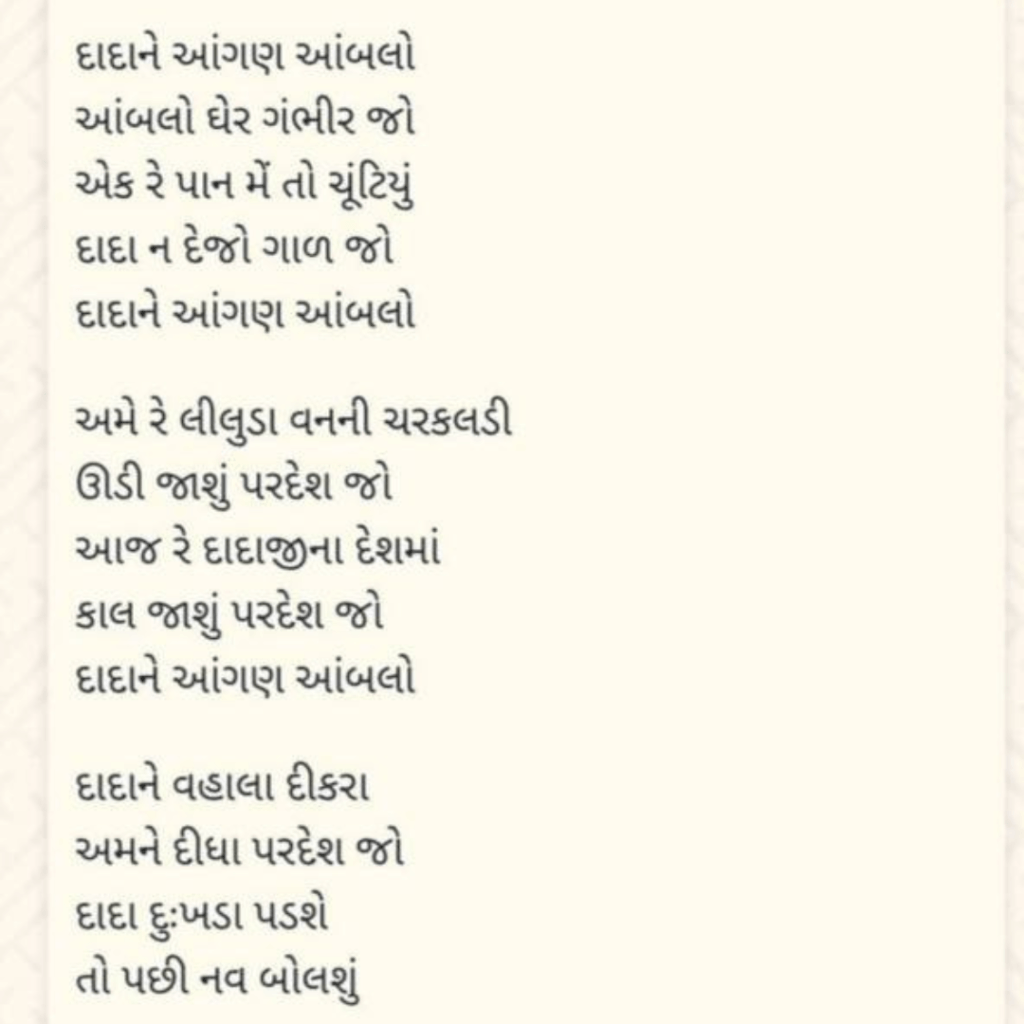 દાદાને આંગણ આંબલો
આંબલો ઘેર ગંભીર જો
એક રે પાન મેં તો ચૂંટિયું
દાદા ન દેજો ગાળ જો
દાદાને આંગણ આંબલો
અમે રે લીલુડા વનની ચરકલડી
ઊડી જાશું પરદેશ જો
આજ રે દાદાજીના દેશમાં
કાલ જાશું પરદેશ જો
દાદાને આંગણ આંબલો
દાદાને વહાલા દીકરા
અમને દીધા પરદેશ જો
દાદા દુઃખડા પડશે
તો પછી નવ બોલશું